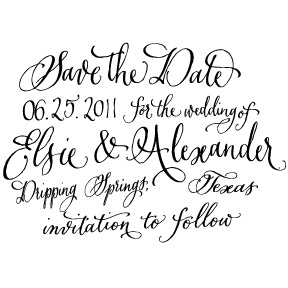 Save the Date
06.25.2011 for the wedding of
Elsie & Alexander
Dripping Springs, Texas
invitation to follow